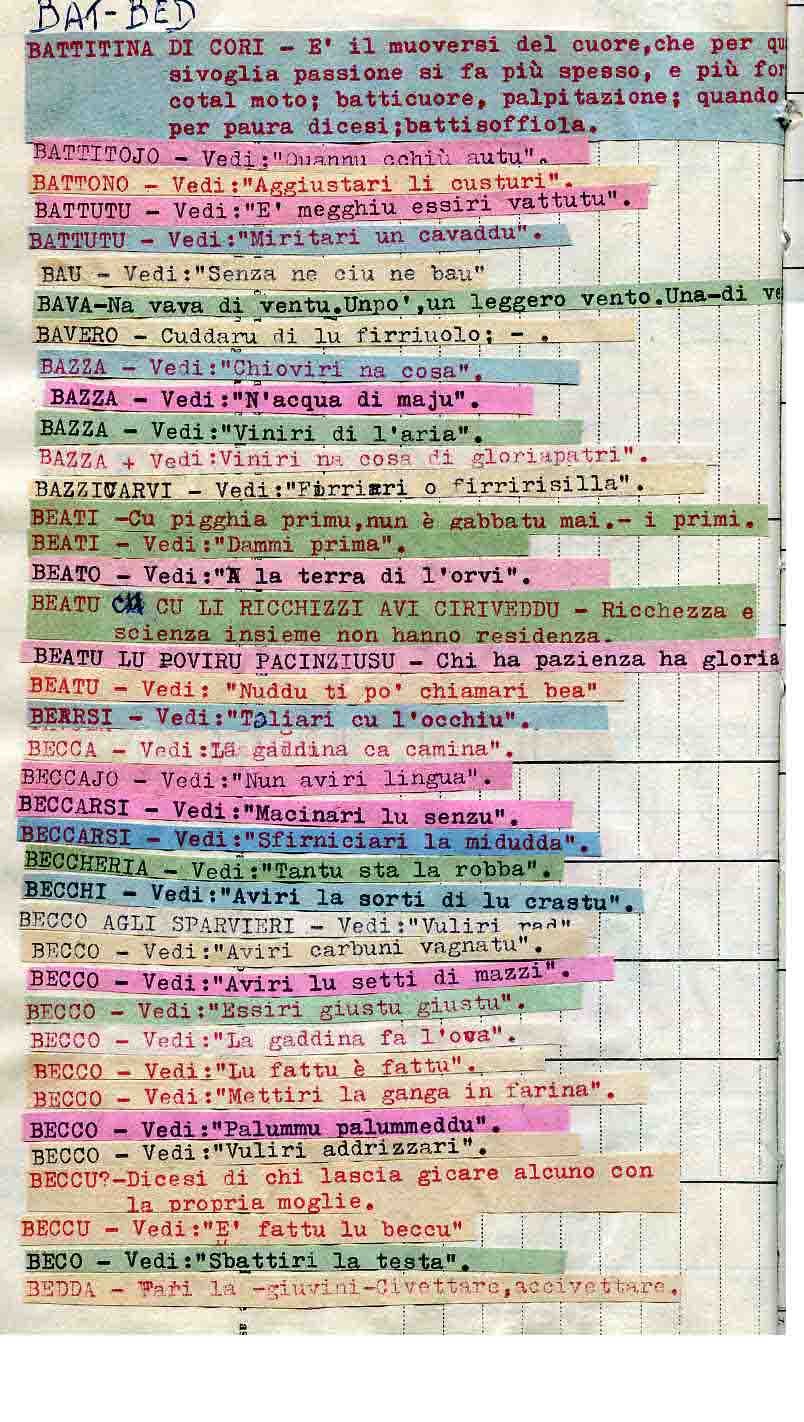 BAT-BED
BATTITINA DI CORI - E' il muoversi del cuore,che per qu
sivoglia passione si fa più spesso, e più for
cotal moto; batticuore, palpitazione; quando
per paura dicesi;battisoffiola.
BATTITOJO - Vedi:"Quannu cchiù autu".
BATTONO - Vedi:"Aggiustari li custuri".
BATTUTU - Vedi:"E' megghiu essiri vattutu".
BATTUTU - Vedi:"Miritari un cavaddu".
BAU - Vedi:"Senza ne ciu ne bau"
BAVA-Na vava di ventu.Unpo',un leggero vento.Una-di ve
BAVERO - Cuddaru di lu firriuolo; - .
BAZZA - Vedi:"Chioviri na cosa".
BAZZA - Vedi:"N'acqua di maju".
BAZZA - Vedi:"Viniri di l'aria".
BAZZA + Vedi:Viniri na cosa di gloriapatri".
BAZZICARVI - Vedi:"Firriari o firririsilla".
BEATI -Cu pigghia primu,nun è gabbatu mai.- i primi.
BEATI - Vedi:"Dammi prima".
BEATO - Vedi:"A la terra di l'orvi".
BEATU CU LI RICCHIZZI AVI CIRIVEDDU - Ricchezza e
scienza insieme non hanno residenza.
BEATU LU POVIRU PACINZIUSU - Chi ha pazienza ha gloria
BEATU - Vedi: "Nuddu ti po' chiamari bea"
BEARSI - Vedi:"Taliari cu l'occhiu".
BECCA - Vedi:La gaddina ca camina".
BECCAJO - Vedi:"Nun aviri lingua".
BECCARSI - Vedi:"Macinari lu senzu".
BECCARSI - Vedi:"Sfirniciari la midudda".
BECCHERIA - Vedi:"Tantu sta la robba".
BECCHI - Vedi:"Aviri la sorti di lu crastu".
BECCO AGLI SPARVIERI - Vedi:"Vuliri rad"
BECCO - Vedi:"Aviri carbuni vagnatu".
BECCO - Vedi:"Aviri lu setti di mazzi".
BECCO - Vedi:"Essiri giustu giustu".
BECCO - Vedi:"La gaddina fa l'ova".
BECCO - Vedi:"Lu fattu è fattu".
BECCO - Vedi:"Mettiri la ganga in farina".
BECCO - Vedi:"Palummu palummeddu".
BECCO - Vedi:"Vuliri addrizzari".
BECCU?-Dicesi di chi lascia gicare alcuno con
la propria moglie.
BECCU - Vedi:"E' fattu lu beccu"
BECO - Vedi:"Sbattiri la testa".
BEDDA - Fari la -giuvini-Civettare,accivettare.